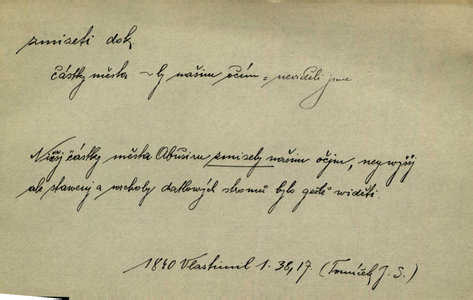 zmizeti dok.
částky města ~ly našim očím = neviděli jsme
Nižšj částky města Abusiru zmizely našim očjm, neywyžšj
ale stawenj a wrcholy datlowých stromů bylo geště widěti.
1840 Vlastimil 1. 38,17. (Tomíček J. S.)